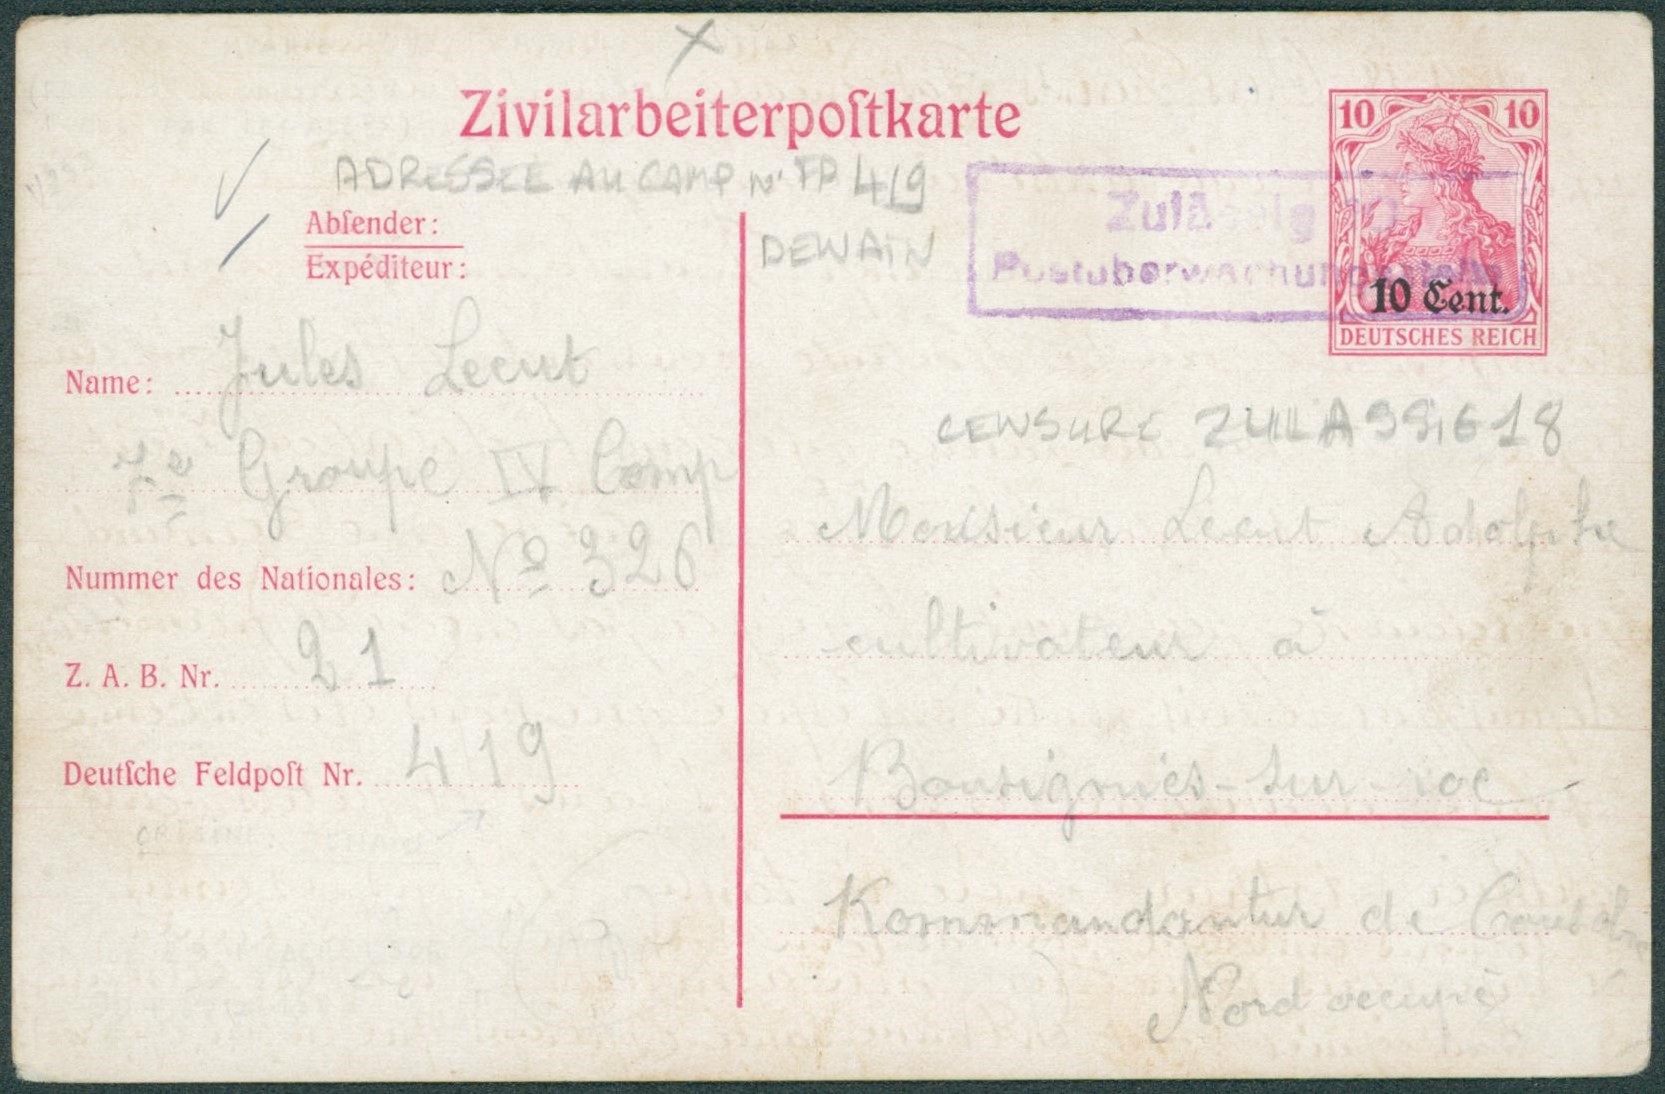 Zivilarbeiterpoſtkarte
ADRESSEE AU CAMP N° FP 419
DEWAIN
Abſender:
Expéditeur:
Name: Jules Lecut
7e Groupe IV Comp
Nummer des Nationales: No 326
Z. A. B. Nr. 21
Deutſche Feldpoſt Nr. 419
10 10
10 Cent.
DEUTSCHES REICH
Zulässig
Postüberwachungsstelle
CENSURE ZULASSIG 18
Monsieur Lecut Adolphe
cultivateur à
Bousignies-sur-roc
Kommandantur de
Nord occupé